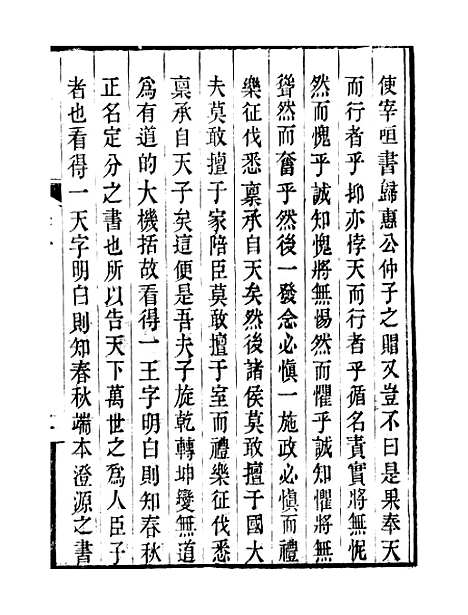 使宰咺書歸惠公仲子之賵又豈不曰是果奉天
而行者乎抑亦悖天而行者乎循名責實將無怩
然而愧乎誠知愧將無惕然而懼乎誠知懼將無
聳然而奮乎然後一發念必慎一施政必慎而禮
樂征伐悉稟承自天矣然後諸侯莫敢擅于國大
夫莫敢擅于家陪臣莫敢擅于室而禮樂征伐悉
稟承自天子矣這便是吾夫子旋乾轉坤變無道
爲有道的大機括故看得一王字明白則知春秋
正名定分之書也所以告天下萬世之爲人臣子
者也看得一天字明白則知春秋端本澄源之書